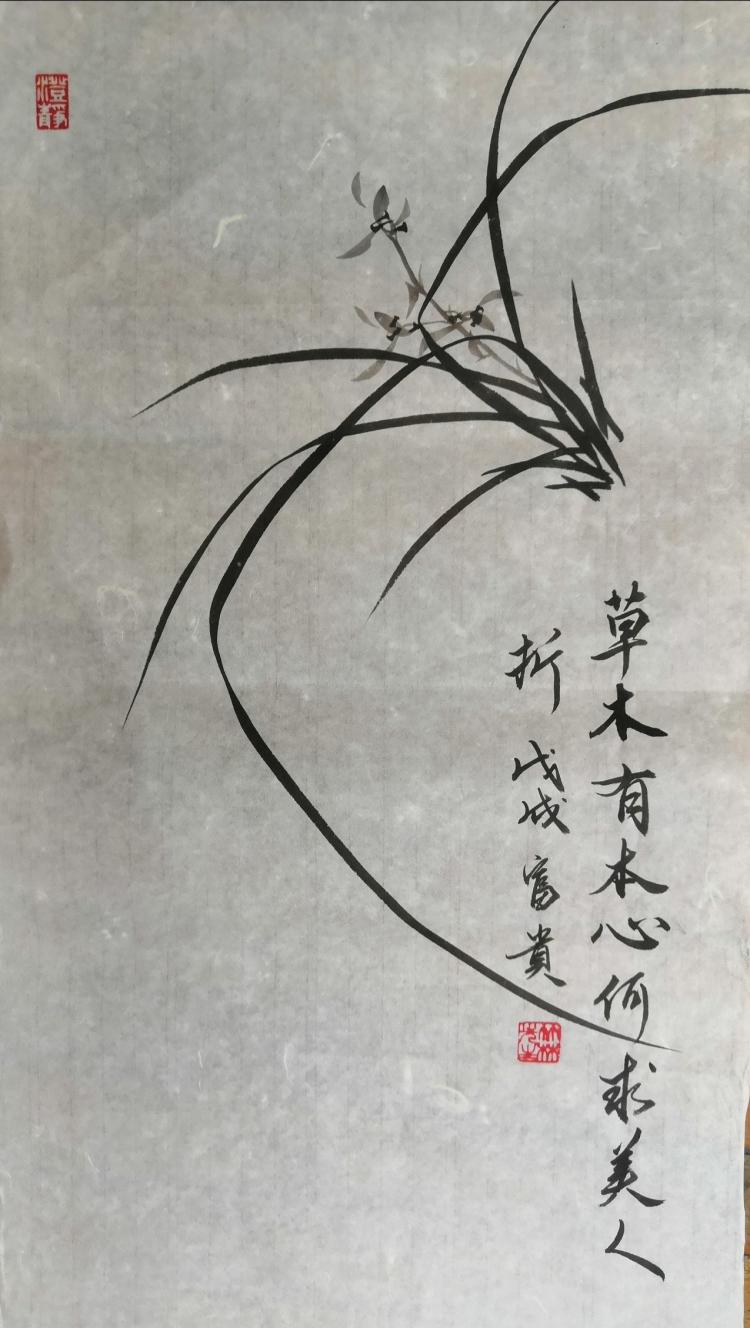 草木有本心何求美人
折 戊戌 富貴
澄靜